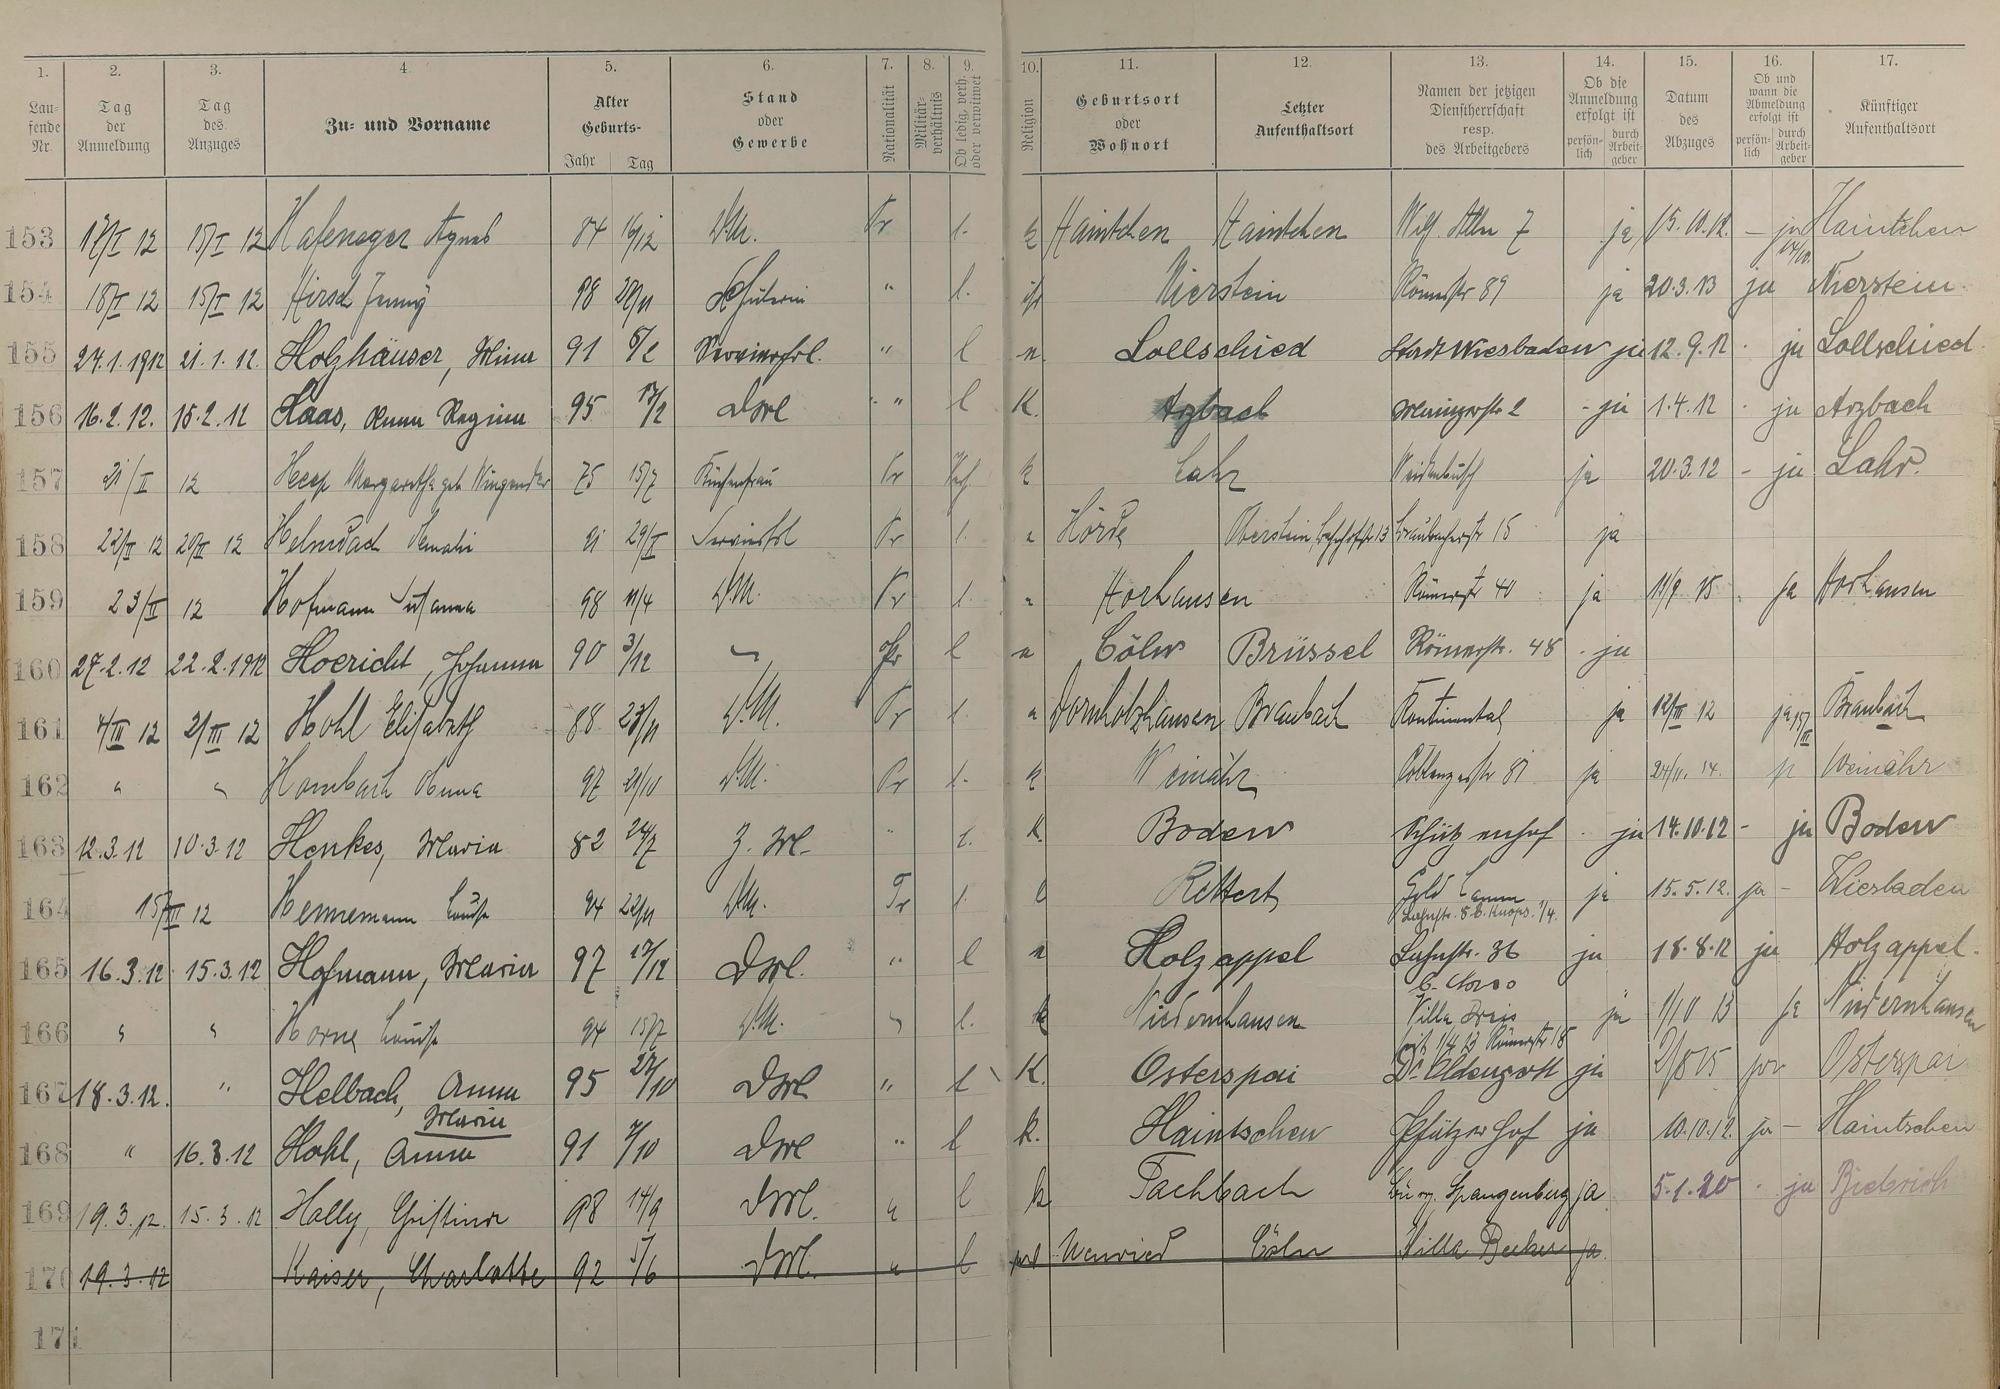 1. 2. 3. 4 5. 6. 7. 8. 9. 10. 11. 12. 13. 14. 15. 16. 17.
Lau-
fende
Nr.
Tag
der
Anmeldung
Tag
des
Anzuges
Zu- und Vorname
Alter
Geburts-
Jahr Tag
Stand
oder
Gewerbe
Nationalität
Militär-
verhältnis
Ob ledig, verh.
oder verwitwet
Religion
Geburtsort
oder
Wohnort
Letzter
Aufenthaltsort
Namen der jetzigen
Dienstherrschaft
resp.
des Arbeitgebers
Ob die
Anmeldung
erfolgt ist
persön-
lich
durch
Arbeit-
geber
Datum
des
Abzuges
Ob und
wann die
Abmeldung
erfolgt ist
persön-
lich
durch
Arbeit-
geber
Künftiger
Aufenthaltsort
153 17/I 12 15/I 12 Hafeneger Agnes 84 16/12 D.M. Pr l. k Haintchen Haintchen ja 15.10.12. – ja Haintchen
154 18/I 12 15/I 12 Hirsch Jenny 98 28/11 Schülerin " l. isr Nierstein Römerstr 89 ja 20.3.13 ja Nierstein.
155 24.1.1912 21.1.12. Holzhäuser, Mina 91 5/2 Servierfrl. " l n. Lollschied Stadt Wiesbaden ja 12.9.12 ja Lollschied.
156 16.2.12. 15.2.12 Haas, Anna Regina 95 17/2 DMl " l K. Arzbach Mainzerstr 2 - ja 1.4.12 ja Arzbach
157 21/II 12 Margaretha geb 75 15/7 Küchenfrau Pr Verh. k Lahr Weidenbusch ja 20.3.12 – ja Lahr.
158 22/II 12 20/II 12 29/I Servierfrl Pr l. Hörde Oberstein, 13 Braubacherstr 15 ja
159 23/II 12 Hofmann Susanna 98 11/4 D.M. Pr l. Horhausen Römerstr 40 ja 11/9 15 ja Horhausen
160 27.2.12 22.2.1912 Hoericht, Johanna 90 3/12 Pr l Cöln Brüssel Römerstr. 48 - ja
161 4/III 12 2/III 12 Hohl Elisabeth 88 23/11 D.M. Pr l. Dornholzhausen Braubach Kontinental ja 12/III 12 ja 15/III Braubach
162 " " Hombach Anna 97 21/10 D.M. Pr l. k Weinähr Coblenzerstr 81 ja 24/11. 14. ja Weinähr
163 12.3.12 10.3.12 Henkes, Maria 82 24/7 Z. Ml. " l. K. Boden Schützenhof - ja 14.10.12 – ja Boden
164 15/III 12 Hennemann Louise 94 22/11 D.M. Pr l. Rettert Gold Lamm ja 15.5.12. ja – Wiesbaden
165 16.3.12. 15.3.12 Hofmann, Maria 97 17/12 DMl. " l Holzappel Lahnstr. 36 ja 18.8.12 ja Holzappel.
166 " " Horne Louise 94 15/7 D.M. " l. k Niedernhausen Villa ja 1/10 13 ja Niedernhausen
Römerstr 18
167 18.3.12. " Helbach, Anna 95 27/10 DMl " l K. Osterspai ja 2/8 15 Osterspai
Maria
168 " 16.3.12 Hohl, Anna 91 7/10 DMl " l k. Haintschen Pfälzer Hof ja 10.10.12. ja – Haintschen
169 19.3.12. 15.3.12 Holly, Christine 98 14/9 DMl. " l k Fachbach Spangenberg ja 5.1.20 - ja Biebrich
170 19.3.12 Kaiser, Charlotte 92 5/6 DMl. " l Cöln Villa Becker ja.
171